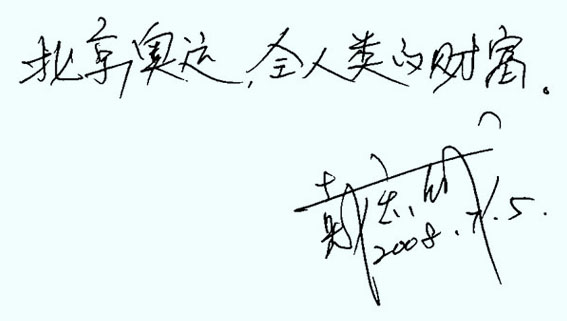 北京奥运,全人类的财富.
2008.7.5.